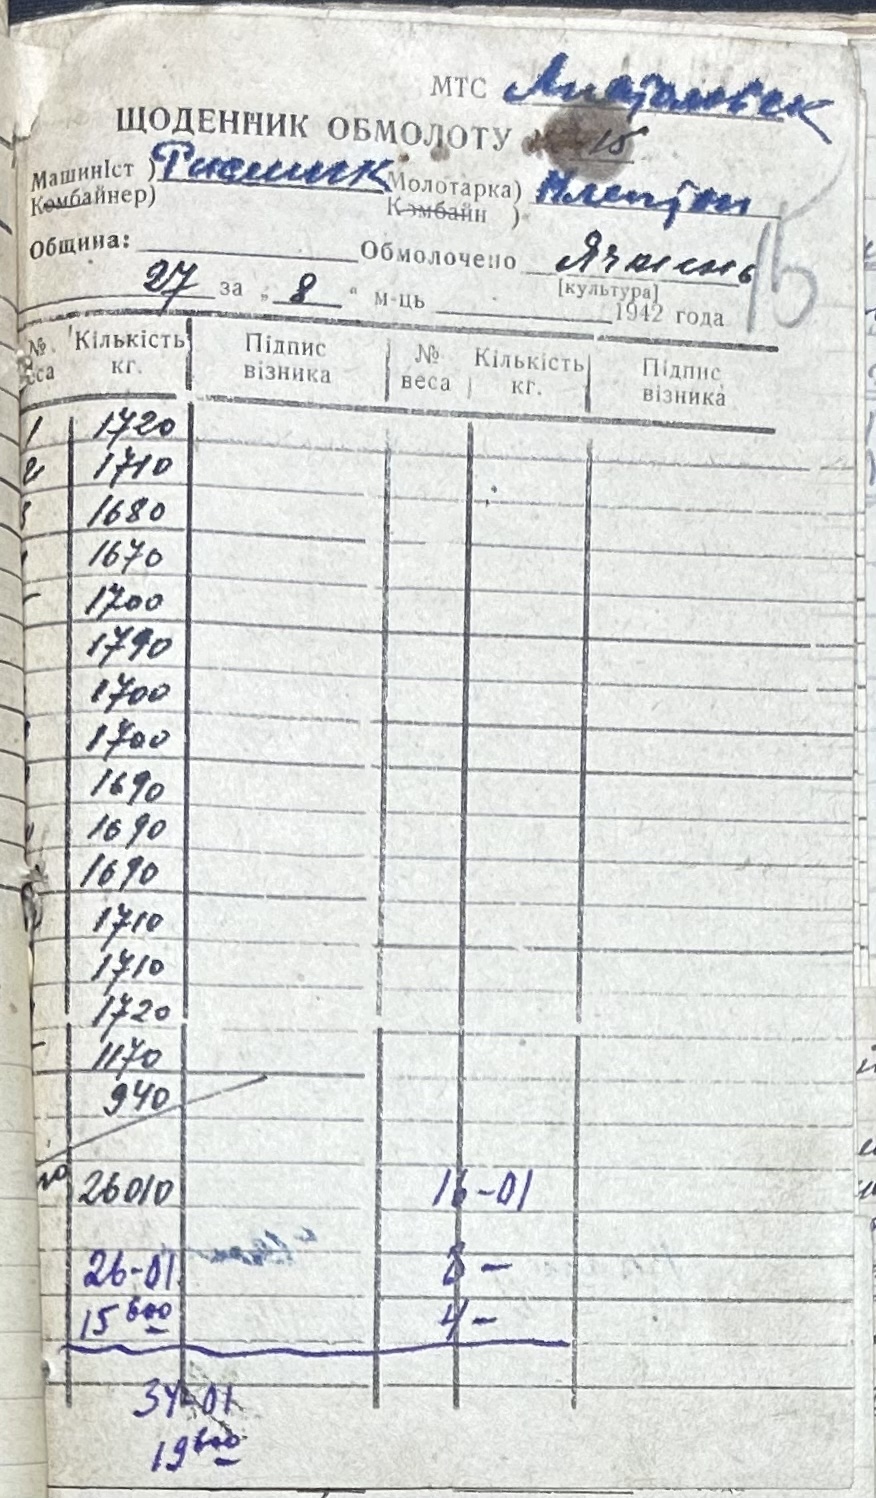 МТС Анатольевск
ЩОДЕННИК ОБМОЛОТУ № 15
Машиніст ) Молотарка)
Комбайнер) Комбайн )
15
Община: Обмолочено Ячмень
[культура]
27 за „ 8 “ м-ць 1942 года
№ веса Кількість кг. Підпис візника № веса Кількість кг. Підпис візника
1 1720
2 1710
3 1680
1670
1700
1790
1700
1700
1690
1690
1690
1710
1710
1720
1170
940
26010 16-01
26-01 8 -
15 600 4 -
34-01
19 600